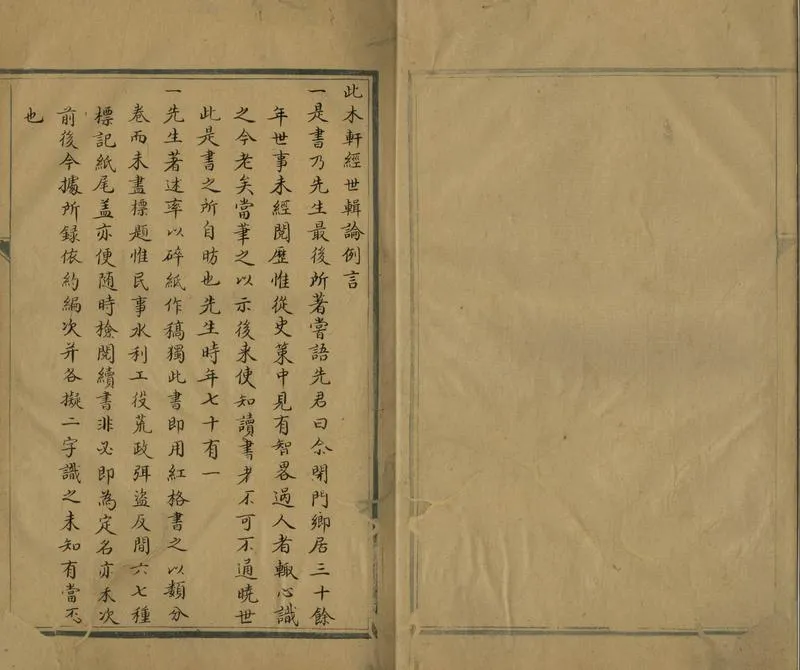 此木軒經世輯論例言
一是書乃先生最後所著嘗語先君曰余閉門鄉居三十餘
年世事未經閱歷惟從史策中見有智畧過人者輙心識
之今老矣當筆之以示後来使知讀書者不可不通曉世
此是書之所自昉也先生時年七十有一
一先生著述率以碎紙作稿獨此書即用紅格書之以類分
卷而未盡標題惟民事水利工役荒政弭盜反間六七種
標記紙尾盖亦便随時檢閱續書非必即為定名亦未次
前後今據所録依約編次并各擬二字識之未知有當否
也